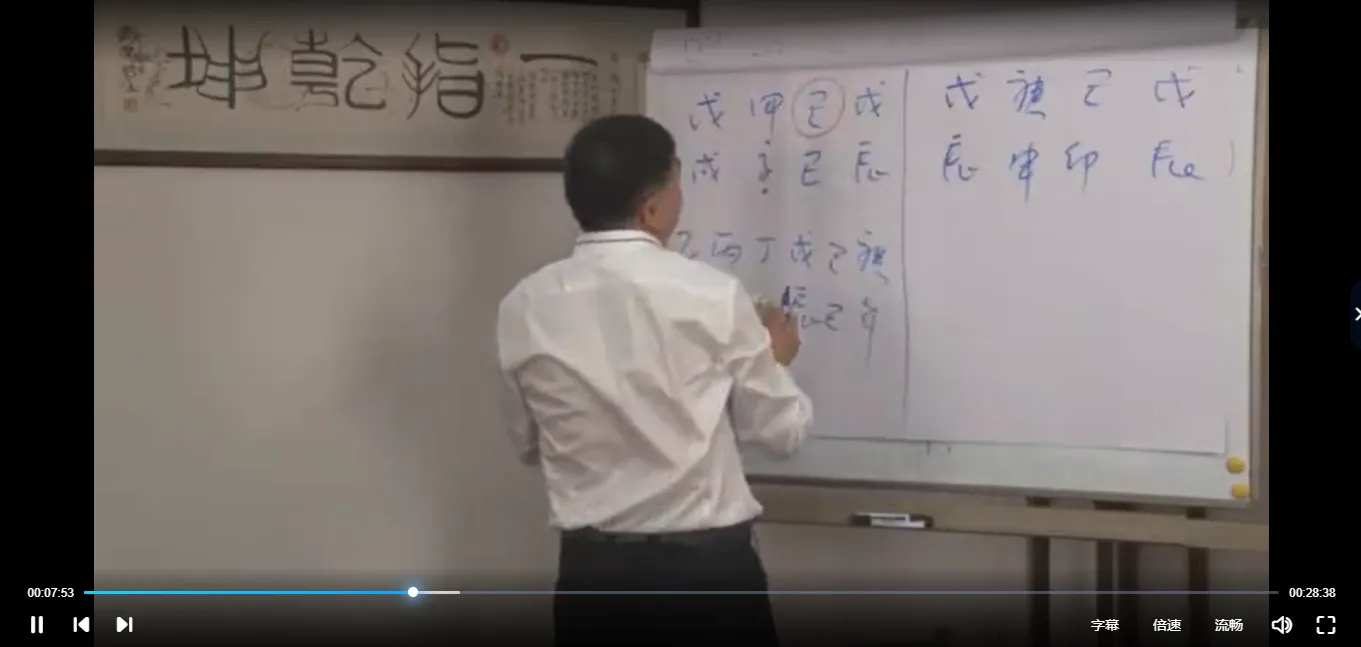 一指乾坤
戊 甲 己 戊
戌 子 巳 辰
丙 丁 戊 己 庚
辰 巳 午
戊 庚 己 戊
辰 申 卯 辰
00:07:53
00:28:38
字幕 倍速 流畅